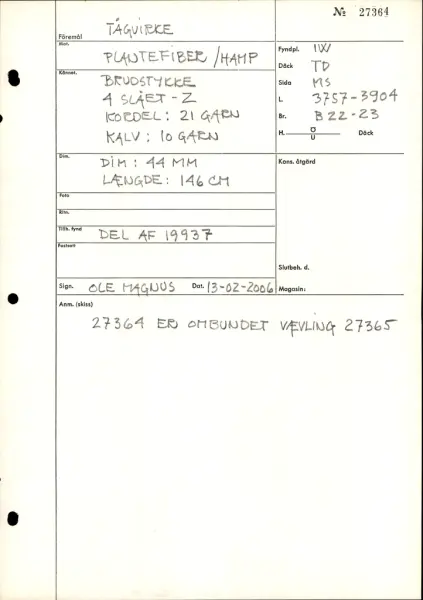 № 27364
Föremål TÅGVIRKE
Mat. PLANTEFIBER/HAMP
Kännet. BRUDSTYKKE
4 SLÅET - Z
KORDEL: 21 GARN
KALV: 10 GARN
Dim. DIM: 44 MM
LÆNGDE: 146 CM
Foto
Ritn.
Tillh. fynd DEL AF 19937
Fastsatt
Sign. OLE MAGNUS Dat. 13-02-2006
Fyndpl. IW
Däck TD
Sida MS
L. 3757-3904
Br. B22-23
H. Ö U Däck
Kons. åtgärd
Slutbeh. d.
Magasin:
Anm. (skiss)
27364 ER OMBUNDET VÆVLING 27365